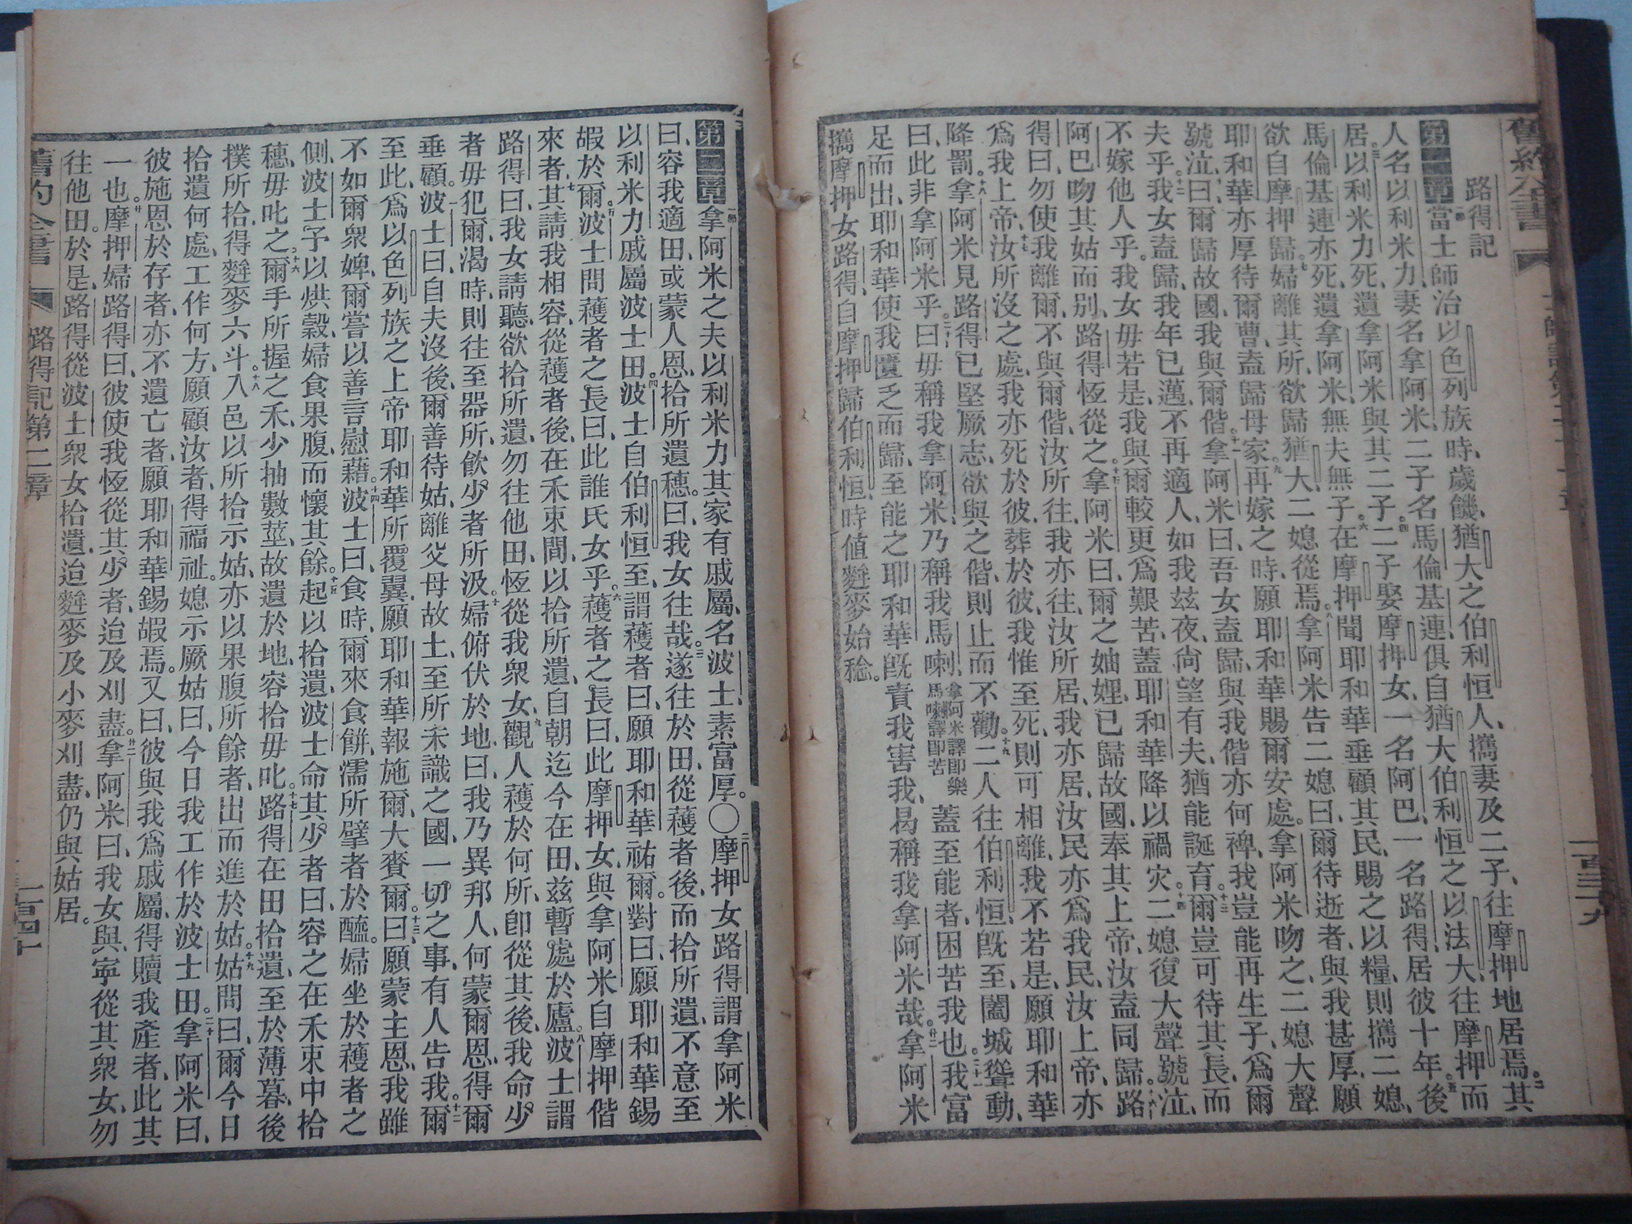 舊約全書
路得記
第一章 一節 當士師治以色列族時、歲饑、猶大之伯利恒人、攜妻及二子、往摩押地居焉。二其
人名以利米力、妻名拿阿米、二子名馬倫基連、俱自猶大伯利恒之以法大、往摩押而
居。三以利米力死、遺拿阿米、與其二子。四二子娶摩押女、一名阿巴、一名路得、居彼十年。五後
馬倫基連亦死、遺拿阿米無夫無子。六在摩押聞耶和華垂顧其民、賜之以糧、則攜二媳、
欲自摩押歸。七婦離其所、欲歸猶大、二媳從焉。八拿阿米告二媳曰、爾待逝者、與我甚厚、願
耶和華亦厚待爾曹、盍歸母家。九再嫁之時、願耶和華賜爾安處、拿阿米吻之、二媳大聲
號泣、十曰爾歸故國、我與爾偕。十一拿阿米曰、吾女盍歸、與我偕亦何裨、我豈能再生子、爲爾
夫乎。十二我女盍歸、我年已邁、不再適人、如我玆夜、尚望有夫、猶能誕育。十三爾豈可待其長、而
不嫁他人乎、我女毋若是、我與爾較、更爲艱苦、蓋耶和華降以禍灾。十四二媳復大聲號泣、
阿巴吻其姑而別、路得恆從之。十五拿阿米曰、爾之妯娌、已歸故國、奉其上帝、汝盍同歸。十六路
得曰、勿使我離爾、不與爾偕、汝所往、我亦往、汝所居、我亦居、汝民亦爲我民、汝上帝、亦
爲我上帝、十七汝所沒之處、我亦死於彼、葬於彼、我惟至死、則可相離、我不若是、願耶和華
降罰。十八拿阿米見路得已堅厥志、欲與之偕、則止而不勸。十九二人往伯利恒、旣至、闔城聳動、
曰、此非拿阿米乎。二十曰、毋稱我拿阿米、乃稱我馬喇、拿阿米譯卽樂馬喇譯卽苦蓋至能者、困苦我也。廿一我富
足而出、耶和華使我匱乏而歸、至能之耶和華、旣責我害我、曷稱我拿阿米哉。廿二拿阿米
攜摩押女路得、自摩押歸伯利恒、時値麰麥始稔。
第二章 一節 拿阿米之夫以利米力其家有戚屬、名波士、素富厚。〇二摩押女路得謂拿阿米
曰、容我適田、或蒙人恩、拾所遺穗、曰、我女往哉。三遂往於田、從穫者後、而拾所遺、不意至
以利米力戚屬波士田。四波士自伯利恒至、謂穫者曰、願耶和華祐爾。對曰、願耶和華錫
嘏於爾。五波士問穫者之長曰、此誰氏女乎。六穫者之長曰、此摩押女、與拿阿米自摩押偕
來者。七其請我相容、從穫者後、在禾束間、以拾所遺、自朝迄今在田、玆暫處於廬。八波士謂
路得曰、我女請聽、欲拾所遺、勿往他田、恆從我衆女、九觀人穫於何所、卽從其後、我命少
者毋犯爾、渴時則往至器所、飲少者所汲。十婦俯伏於地、曰、我乃異邦人、何蒙爾恩、得爾
垂顧。十一波士曰、自夫沒後、爾善待姑、離父母故土、至所未識之國、一切之事、有人告我、十二爾
至此、爲以色列族之上帝耶和華所覆翼、願耶和華報施爾、大賚爾。十三曰、願蒙主恩、我雖
不如爾衆婢、爾嘗以善言慰藉。十四波士曰、食時、爾來食餅、濡所擘者於醯、婦坐於穫者之
側、波士予以烘穀、婦食果腹、而懷其餘。十五起以拾遺、波士命其少者曰、容之在禾束中拾
穗、毋叱之。十六爾手所握之禾、少抽數莖、故遺於地、容拾毋叱。十七路得在田拾遺、至於薄暮、後
撲所拾、得麰麥六斗、十八入邑、以所拾示姑、亦以果腹所餘者、出而進於姑。十九姑問曰、爾今日
拾遺何處、工作何方、願顧汝者得福祉、媳示厥姑曰、今日我工作於波士田。二十拿阿米曰、
彼施恩於存者、亦不遺亡者、願耶和華錫嘏焉。又曰、彼與我爲戚屬、得贖我產者、此其
一也。廿一摩押婦路得曰、彼使我恆從其少者、迨及刈盡。廿二拿阿米曰、我女與寧從其衆女、勿
往他田。於是、路得從波士衆女拾遺、迨麰麥及小麥刈盡、仍與姑居。
舊約全書 路得記第二章 一百四十